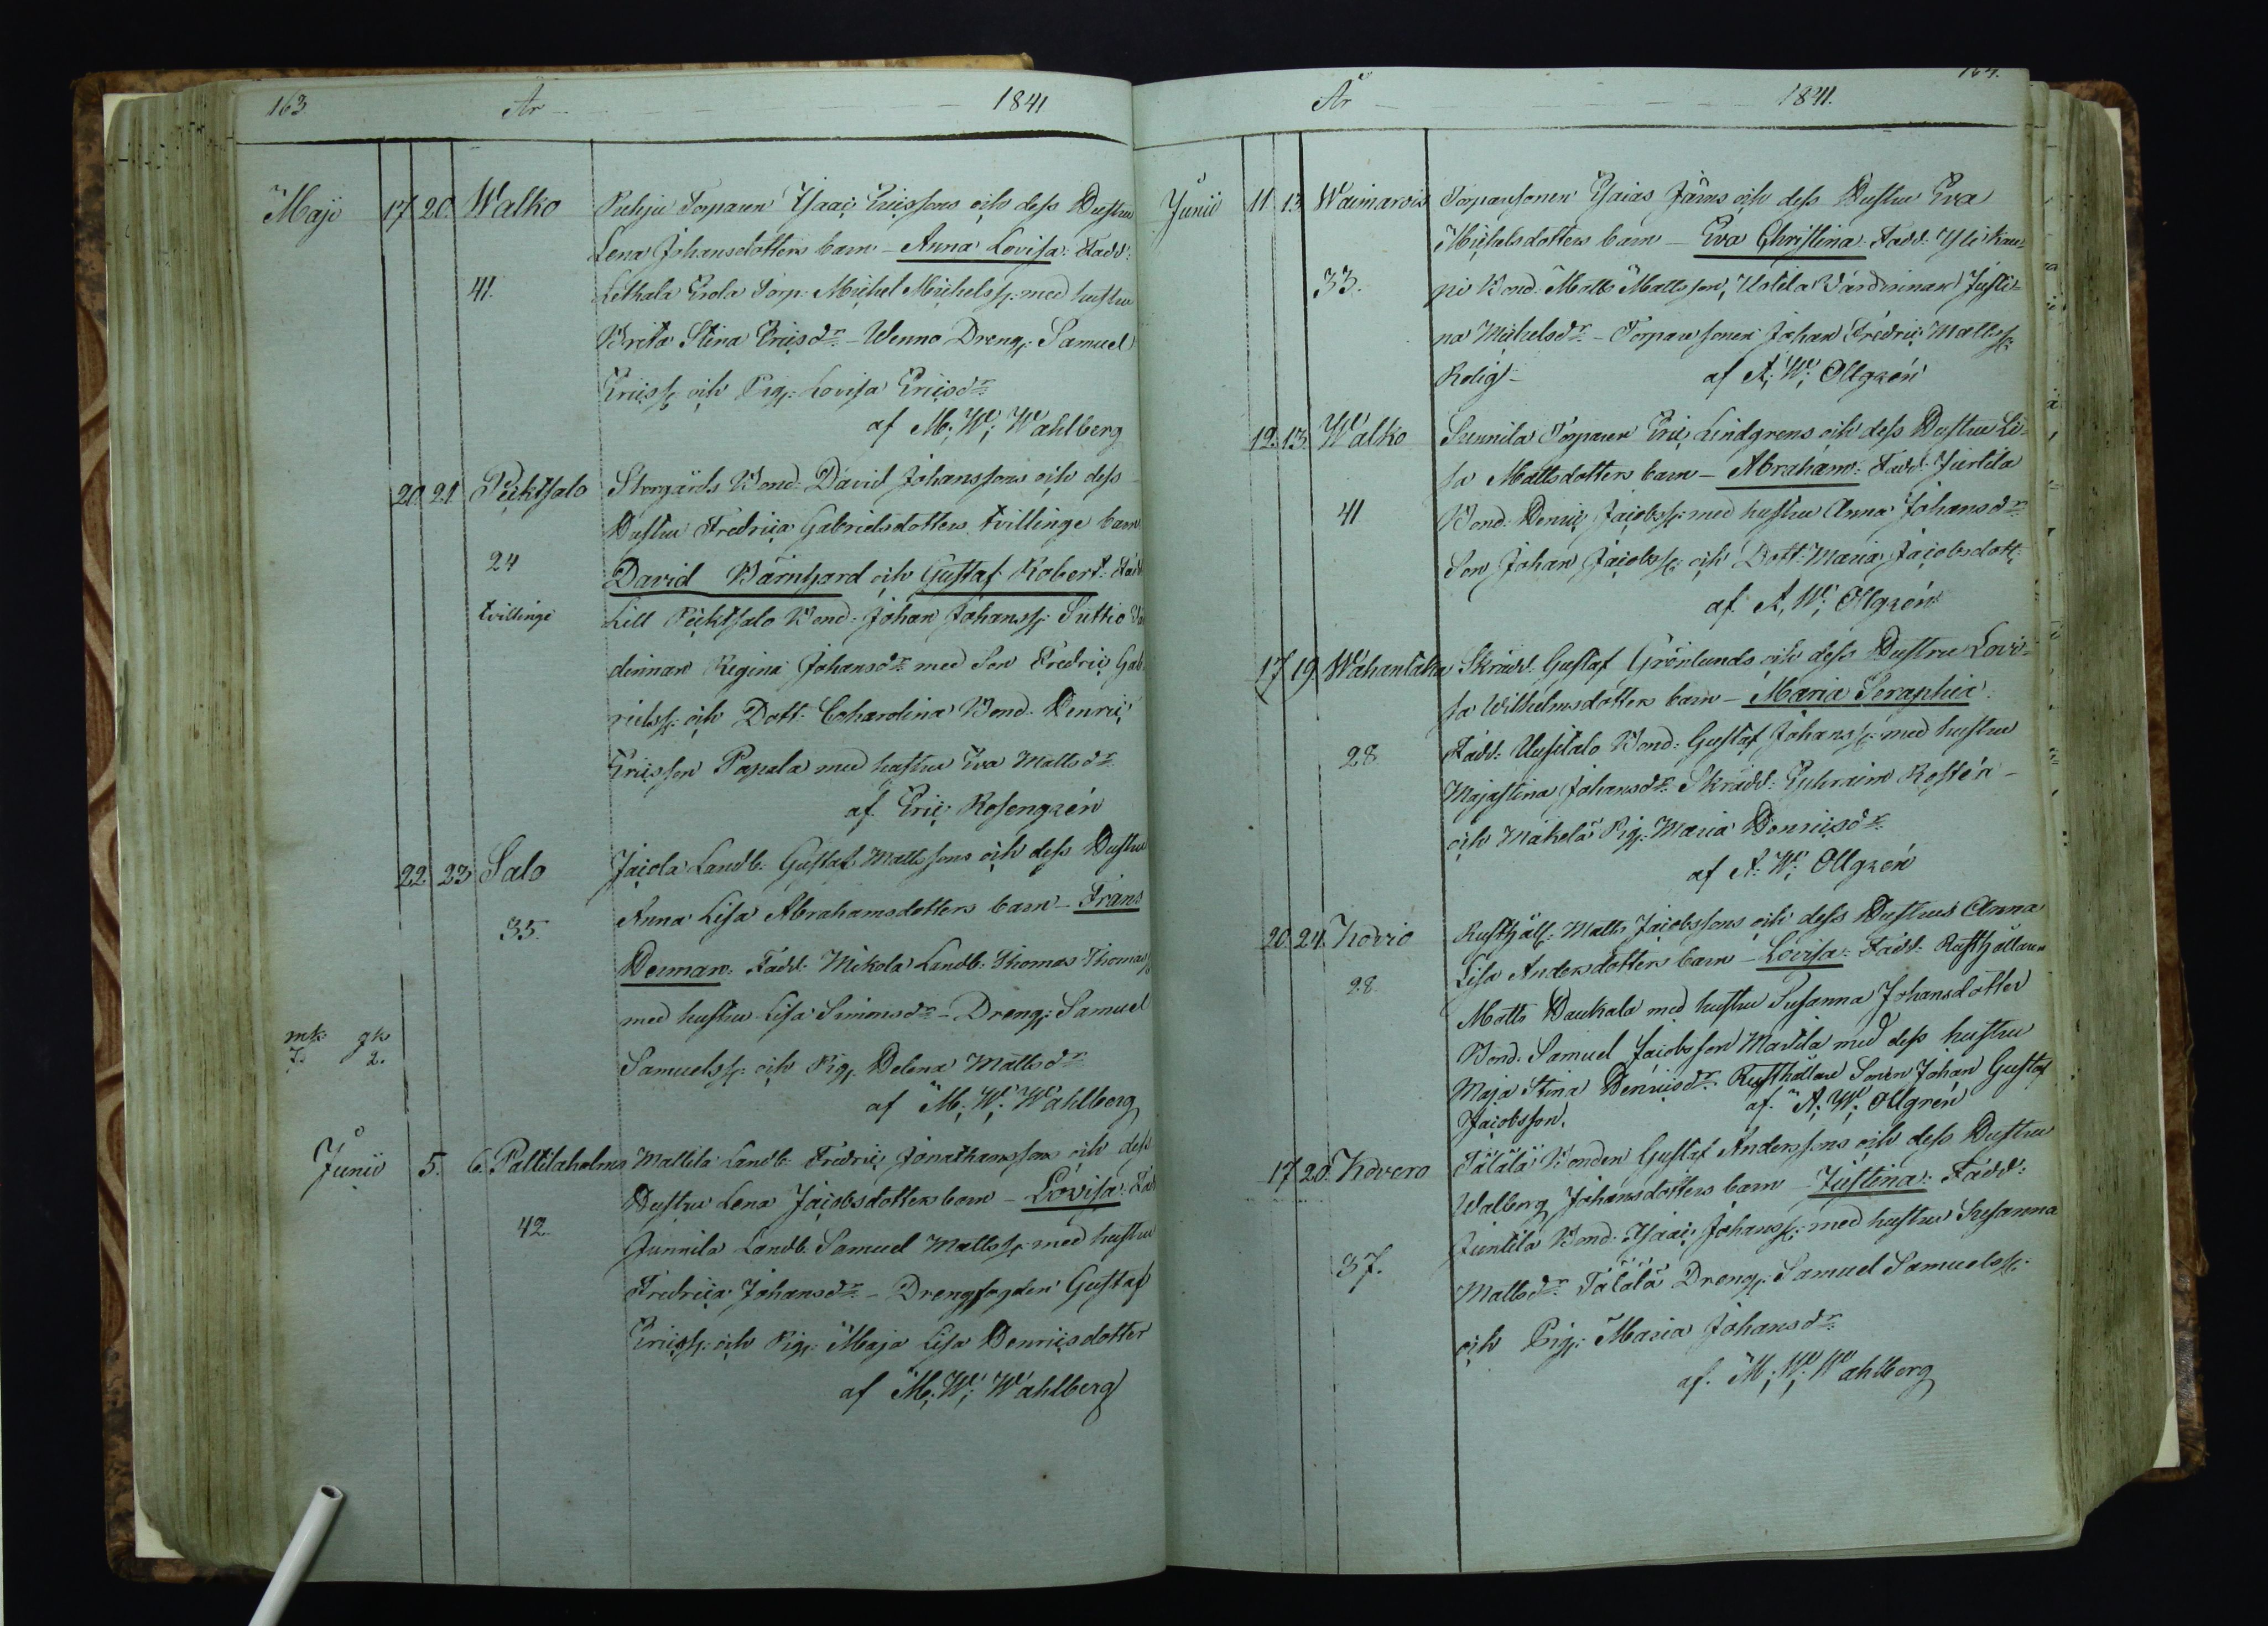 163. År 1841
Maji 17 20 Walko Puhju Torparen Isaac Ericssons och dess Hustru
Lena Johansdotters barn – Anna Lovisa: Fadd:
41. Lethala Erola Torp: Michel Michelss: med hustru
Brita Stina Ericsdr – Wenno Dreng: Samuel
Ericss: och Pig: Lovisa Ericsdr
af M: W: Wahlberg
20 21 Pecktsalo Storgårds Bond: David Johanssons och dess
Hustru Fredrica Gabrielsdotters tvillinge barn
24 David Bärnhard och Gustaf Robert: Fadd
tvillinge Lill Pecktsalo Bond: Johan Johanss: Suttio
dinnan Regina Johansdr med Son Fredric Gab
rielss: och Dott: Cohardina Bond: Henric
Ericsson Papala med hustru Eva Mattsdr
af Eric Rosengrén
22 23 Salo Jacola Landb: Gustaf Mattssons och dess Hustru
35. Anna Lisa Abrahamsdotters barn – Frans
Herman: Fadd: Mikola Landb: Thomas Thomass
mk qk med hustru Lisa Simonsdr – Dreng: Samuel
7. 2. Samuelss: och Pig: Helena Mattsdr
af M: W: Wahlberg
Junii 5. 6. Pattilaholm Mattila Landb: Fredric Jonathanssons och dess
Hustru Lena Jacobsdotters barn – Lovisa: Fad
42. Junnila Landb: Samuel Mattss: med hustru
Fredrica Johansdr – Drengfogden Gustaf
Ericss: och Pig: Maja Lisa Henricsdotter
af M: W: Wahlberg
164.
År 1841.
Junii 11 13 Waimaros Torparsonen Esaias Järns och dess Hustru Eva
Michelsdotters barn – Eva Christina: Fadd: Yli Kau=
33. pi Bond: Matts Mattsson, Uotila Värdinnan Justi=
na Michelsdr – Torparsonen Johan Fredric Mattss:
Rolig – af A: W: Ollgrén
12 13 Walko Sunnila Torparen Eric Lindgrens och dess Hustru Li=
sa Mattsdotters barn – Abraham: Fadd: Jurtila
41 Bond: Henric Jacobss: med hustru Anna Johansdr
Son Johan Jacobss: och Dott: Maria Jacobsdott:
af A: W: Ollgrén
17 19 Wähantaka Skrädd: Gustaf Grönlunds och dess Hustru Lovi=
sa Wilhelmsdotters barn – Maria Seraphia:
28 Fadd: Uusitalo Bond: Gustaf Johanss: med hustru
Majastina Johansdr Skrädd: Ephraim Rostén –
och Mäkelä Pig: Maria Henricsdr
af A: W: Ollgrén
20 24 Kovio Rusthåll: Matts Jacobssons och dess Hustrus Anna
28 Lisa Andersdotters barn – Lovisa: Fadd: Rusthållaren
Matts Haukala med hustru Susanna Johansdotter
Bond: Samuel Jacobsson Mattila med dess hustru
Maja Stina Henricsdr Rusthållare Sonen Johan Gustaf
Jacobsson. af A: W: Ollgrén
17 20 Kovero Tälälä Bonden Gustaf Anderssons och dess Hustru
Walberg Johansdotters barn – Justina: Fadd:
37. Juntila Bond: Isaac Johanss: med hustru Susanna
Mattsdr Tälälä Dreng: Samuel Samuelss:
och Pig: Maria Johansdr
af M: W: Wahlberg